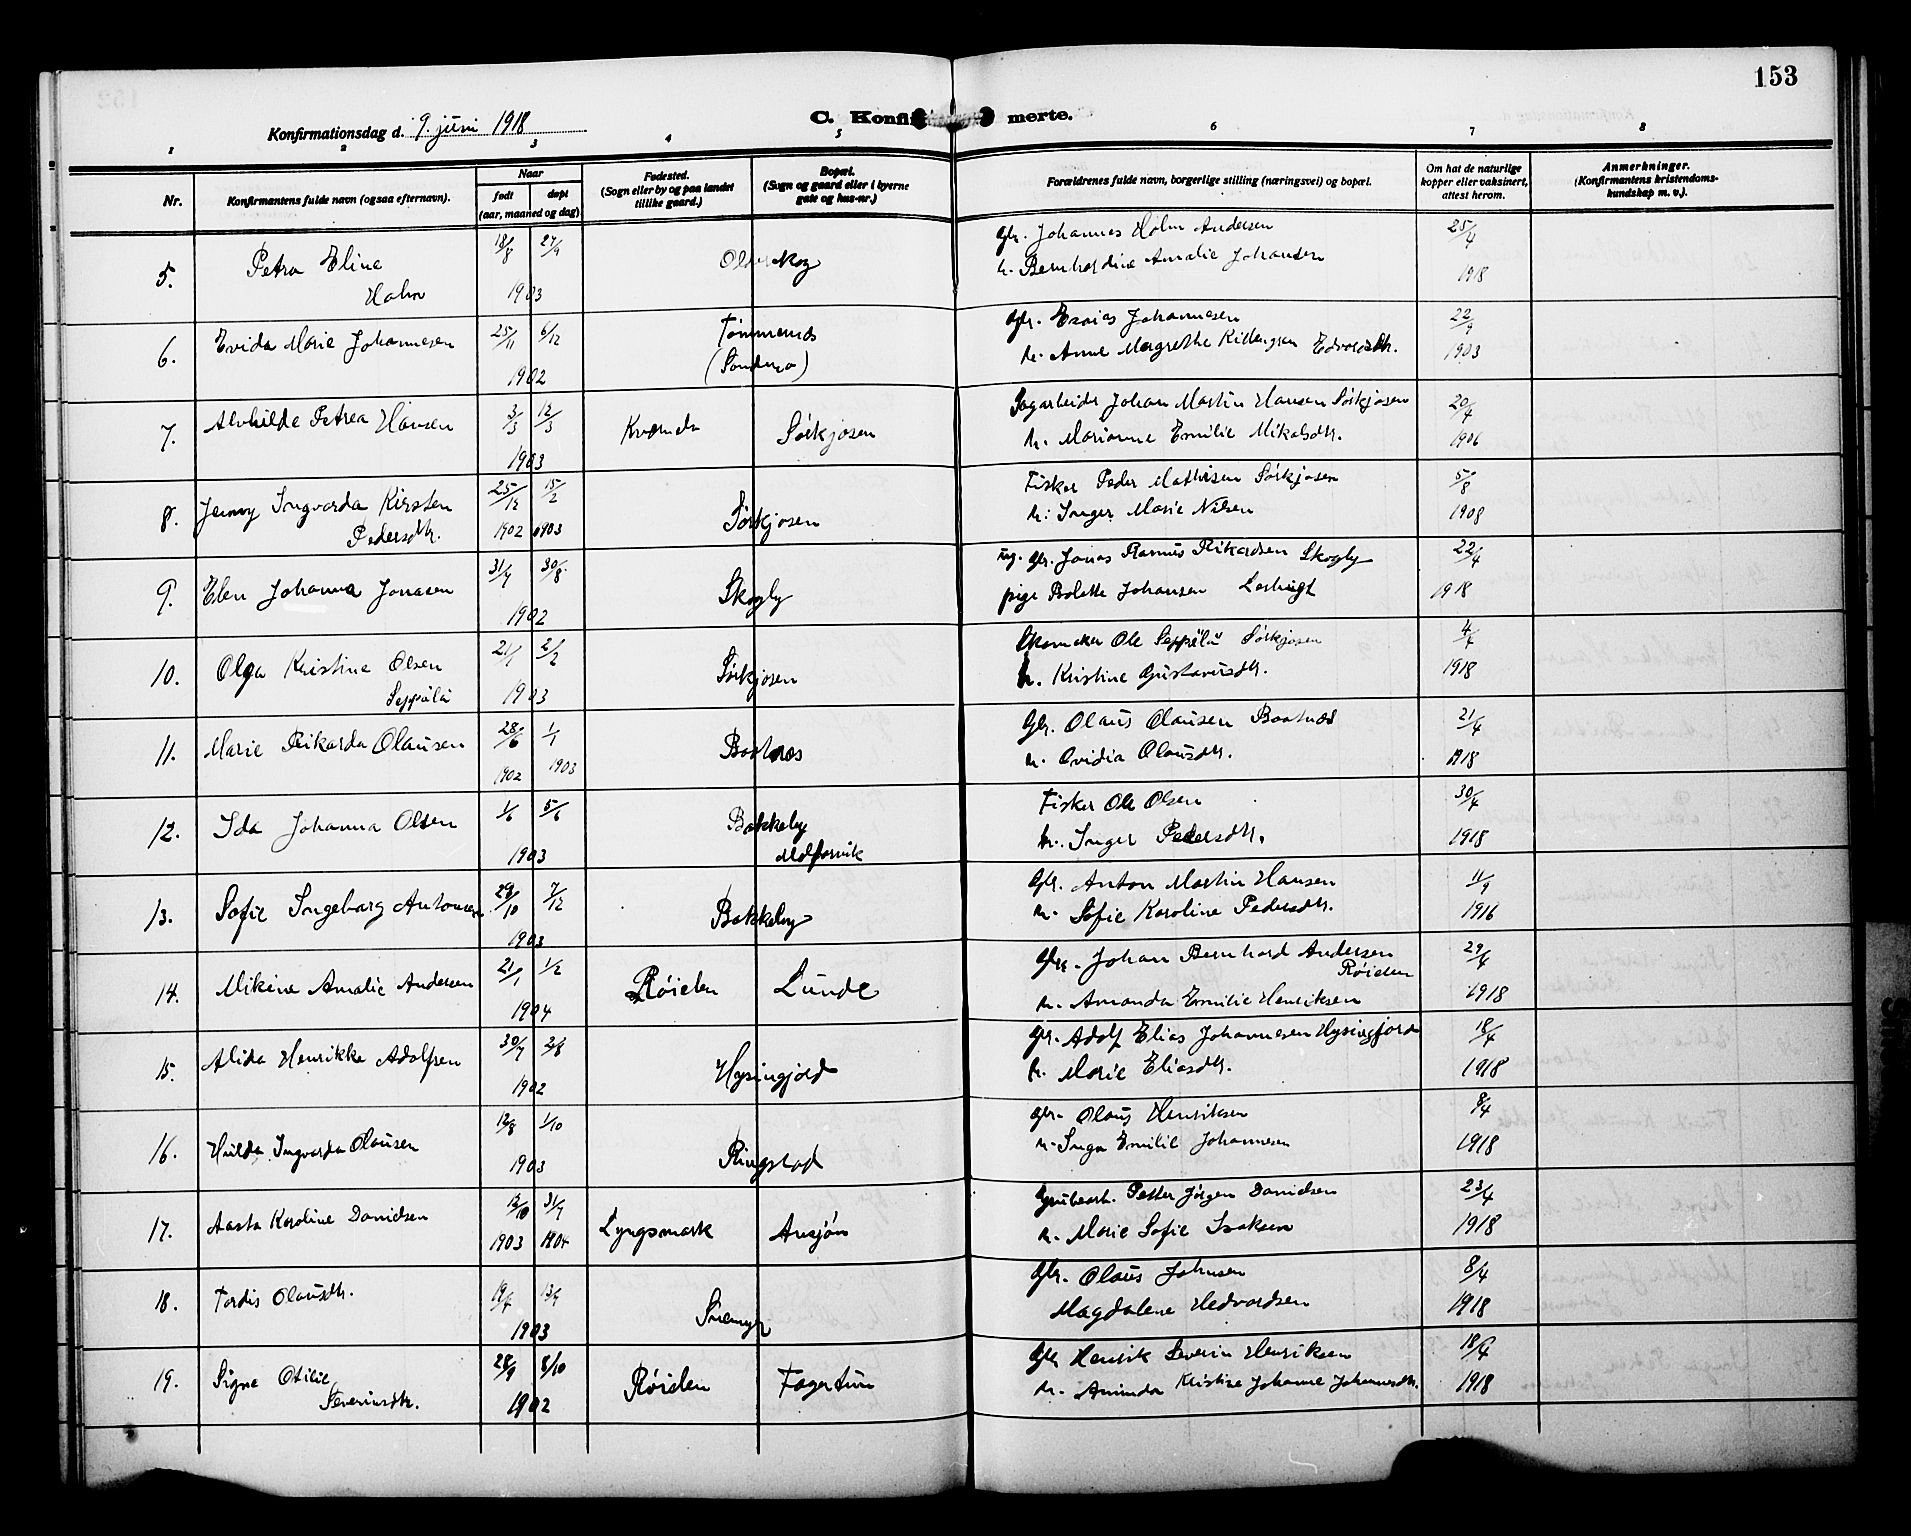 153
Konfirmationsdag d. 9. juni 1918
C. Konfirmerte.
1 2 3 4 5 6 7 8
Nr. Konfirmantens fulde navn (ogsaa efternavn). Naar født døpt (aar, maaned og dag) Fødested. (Sogn eller by og paa landet tillike gaard.) Bopæl. (Sogn og gaard eller i byerne gate og hus-nr.) Forældrenes fulde navn, borgerlige stilling (næringsvei) og bopæl. Om hat de naturlige kopper eller vaksinert, attest herom. Anmerkninger. (Konfirmantens kristendomskundskap m. v.).
5. Petra Eline Holm 18/8 27/9 1903 Olderskog Gbr. Johannes Holm Andersen 25/4
h. Bernhardine Amalie Johansen 1918
6. Evida Marie Johannesen 25/11 6/12 1902 Tømmernes Gbr. Esaias Johannesen 22/9
h. Anne Margrethe Edvardsdtr. 1903
7. Alvhilde Petrea Hansen 3/3 12/3 1903 Sørkjosen Johan Martin Hansen Sørkjosen 20/4
h. Marianne Emilie Mikalsdtr. 1906
8. Jenny Ingvarda Kirsten Pedersdtr. 25/12 1902 15/2 1903 Sørkjosen Fisker Peder Mathisen Sørkjosen 5/8
h. Inger Marie Nilsen 1908
9. Elen Johanna Jonasen 31/7 30/8 1902 Skogly ug. gbr. Jonas Rasmus Rikardsen Skogly 22/4
pige Bolette Johansen 1918
10. Olga Kristine Olsen Seppälä 21/1 2/2 1903 Sørkjosen Skomaker Ole Seppälä Sørkjosen 4/4
h. Kristine Gustavusdtr. 1918
11. Marie Rikarda Olausen 28/6 1902 1/1 1903 Baatnes Gbr. Olaus Olausen Baatnes 21/4
h. Ovidia Olausdtr. 1918
12. Ida Johanna Olsen 1/6 5/6 1903 Bakkeby Fisker Ole Olsen 30/4
h. Inger Pedersdtr. 1918
13. Sofie Ingeborg Antonsen 29/10 7/12 1903 Bakkeby Gbr. Anton Martin Hansen 11/9
h. Sofie Karoline Pedersdtr. 1916
14. Mikine Amalie Andersen 21/1 1/2 1904 Røielen Lunde Gbr. Johan Bernhard Andersen Røielen 29/4
h. Amanda Emilie Henriksen 1918
15. Alida Henrikke Adolfsen 30/7 2/8 1902 Hysingjord Gbr. Adolf Elias Johannesen Hysingjord 18/4
h. Marie Eliasdtr. 1918
16. Hulda Ingvarda Olausen 12/8 1/10 1903 Ringstad Gbr. Olaus Henriksen 8/4
h. Inga Emilie Johannesen 1918
17. Aasta Karoline Danidsen 12/10 1903 31/7 1904 Lyngsmark Ansjøn Grubearb. Petter Jørgen Danidsen 23/4
h. Marie Sofie Isaksen 1918
18. Tordis Olausdtr. 19/7 13/9 1903 Gbr. Olaus Johnsen 8/4
Magdalene Hedvardsen 1918
19. Signe Otilie Severinsdtr. 28/9 8/10 1902 Røielen Fagertun Gbr Henrik Severin Henriksen 18/4
h. Aminda Kristine Johanne Johannesdtr. 1918